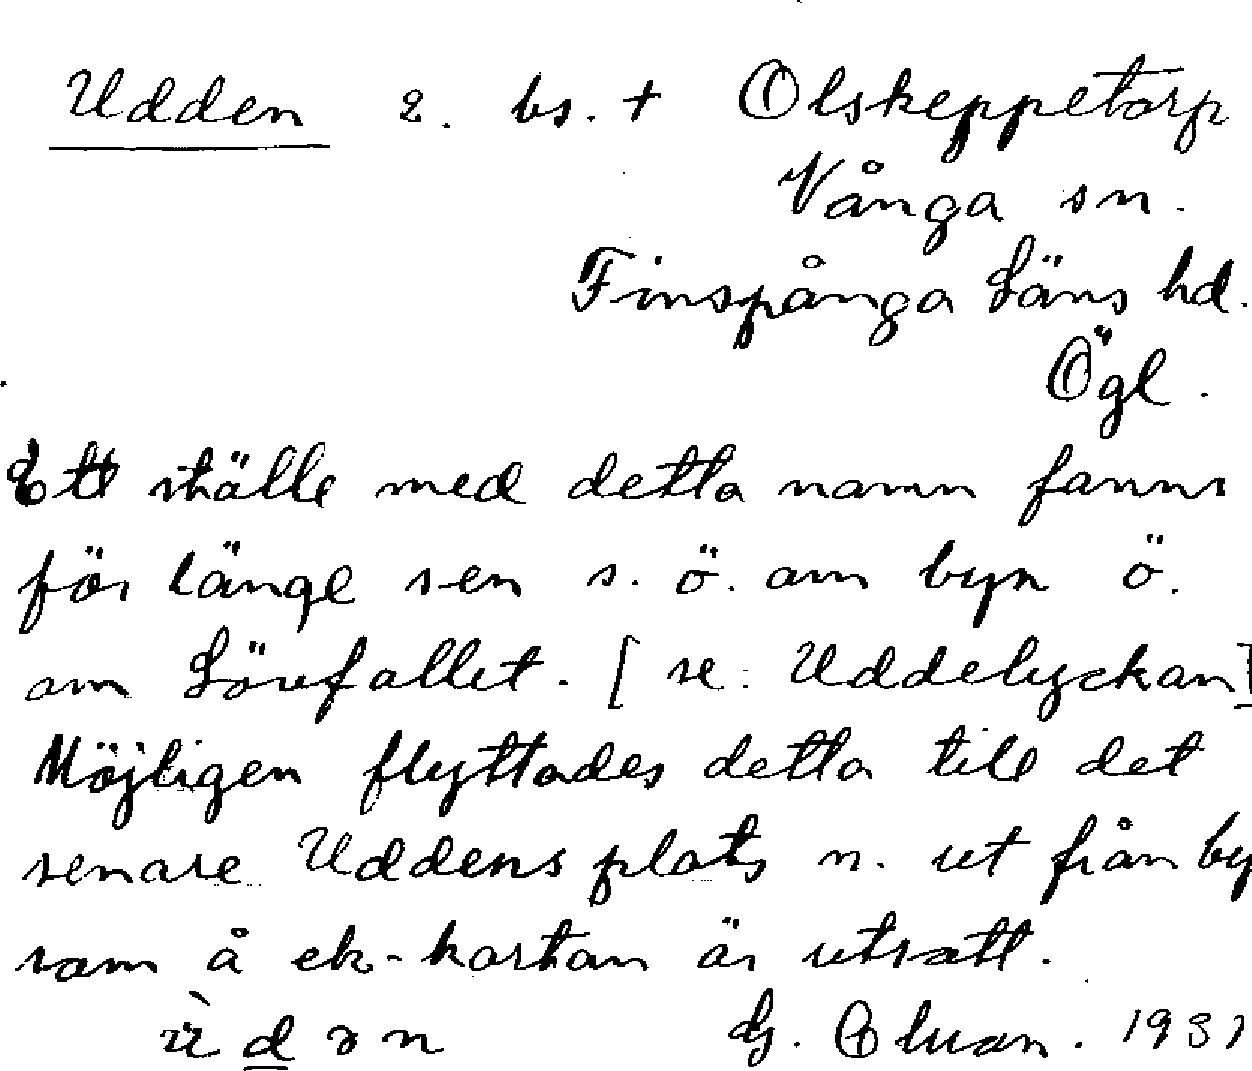 Udden 2. bs. + Olskeppetorp
Vånga sn.
Finspånga Läns hd.
Ögl.
Ett ställe med detta namn fanns
för länge sen s. ö. om byn ö.
om Lövefallet. [se: Uddelyckan]
Möjligen flyttades detta till det
senare Uddens plats n. ut från by
som å ek-kartan är utsatt.
d ə n
G. 1931